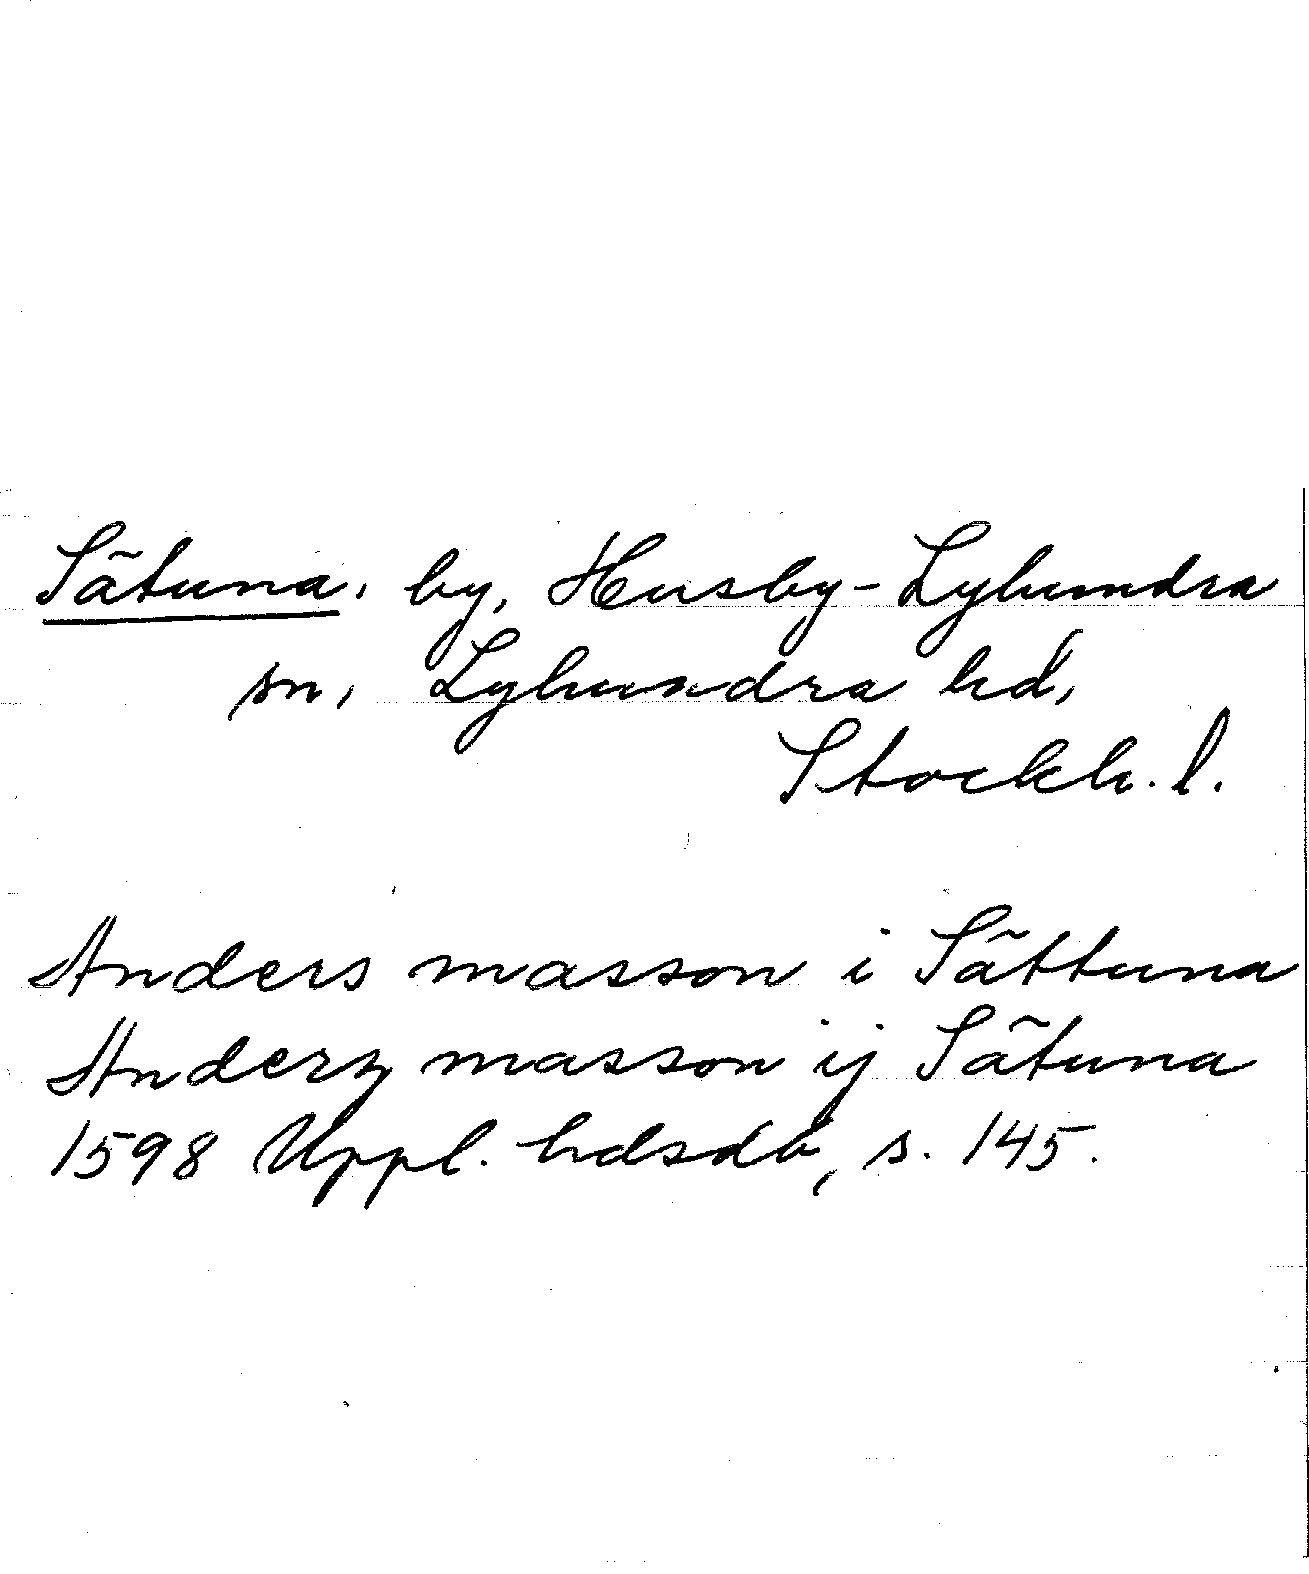 Sätuna, by, Husby-Lyhundra
sn, Lyhundra hd,
Stockh. l.
Anders masson i Sättuna
Anderz masson ij Sätuna
1598 Uppl. hdsdb, s. 145.